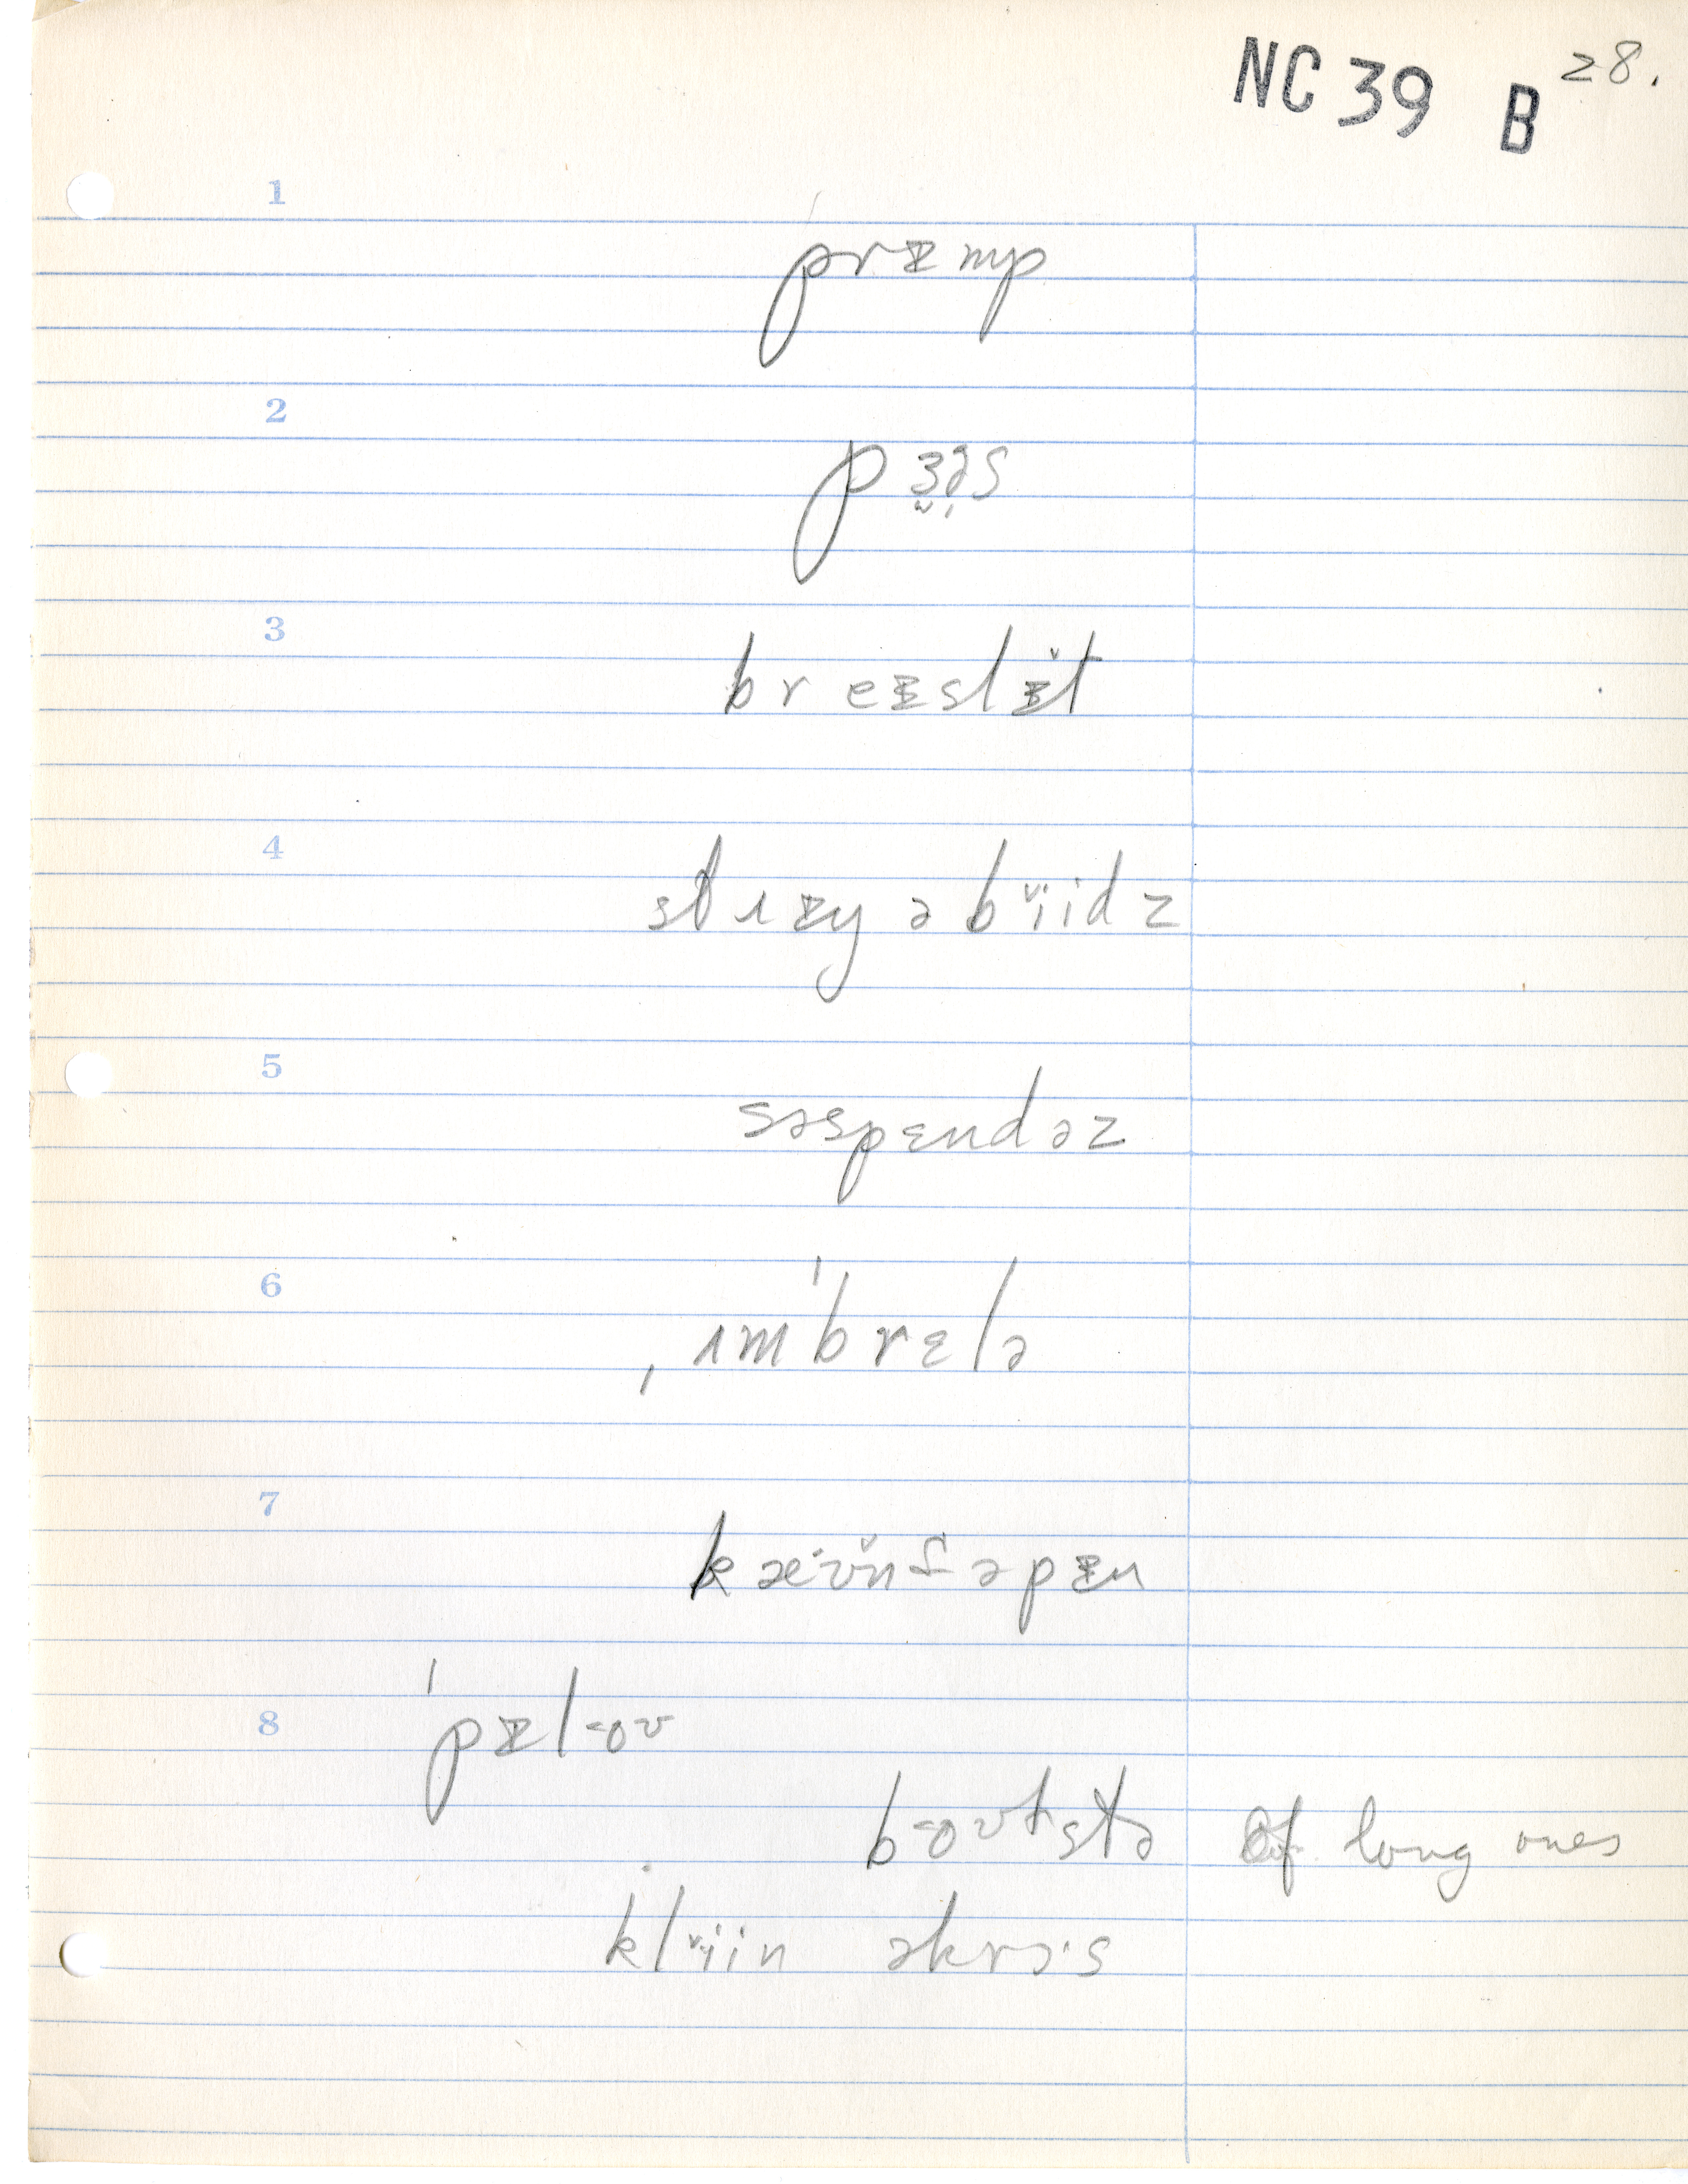 NC 39 B 28.
1
prᵻmp
2
pɜ̬ə̩s
3
breᵻslᵻ̆t
4
stɹᵻyəbĭ̈idz
5
səspɛndəz
6
ˌʌmˈbrɛlə
7
kæ·ʊ̆nfəpᵻn
8
ˈpᵻl-oʊ
b-oʊlstə Of long ones
klĭ̈in əkrɔ·s